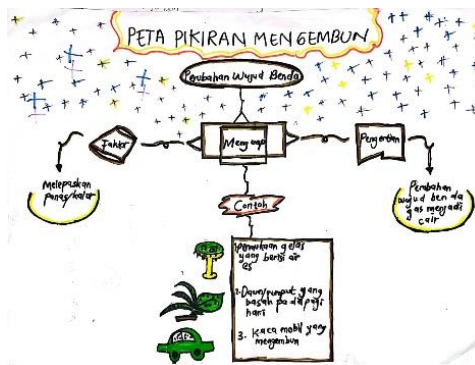 PETA PIKIRAN MENGEMBUN
Perubahan Wujud Benda
Faktor
Pengertian
Melepaskan
panas/kalor
Perubahan
wujud benda
gas menjadi
cair
Contoh
1. Permukaan gelas
yang berisi air
es
2. Daun/rumput yang
basah pada pagi
hari
3. Kaca mobil yang
mengembun